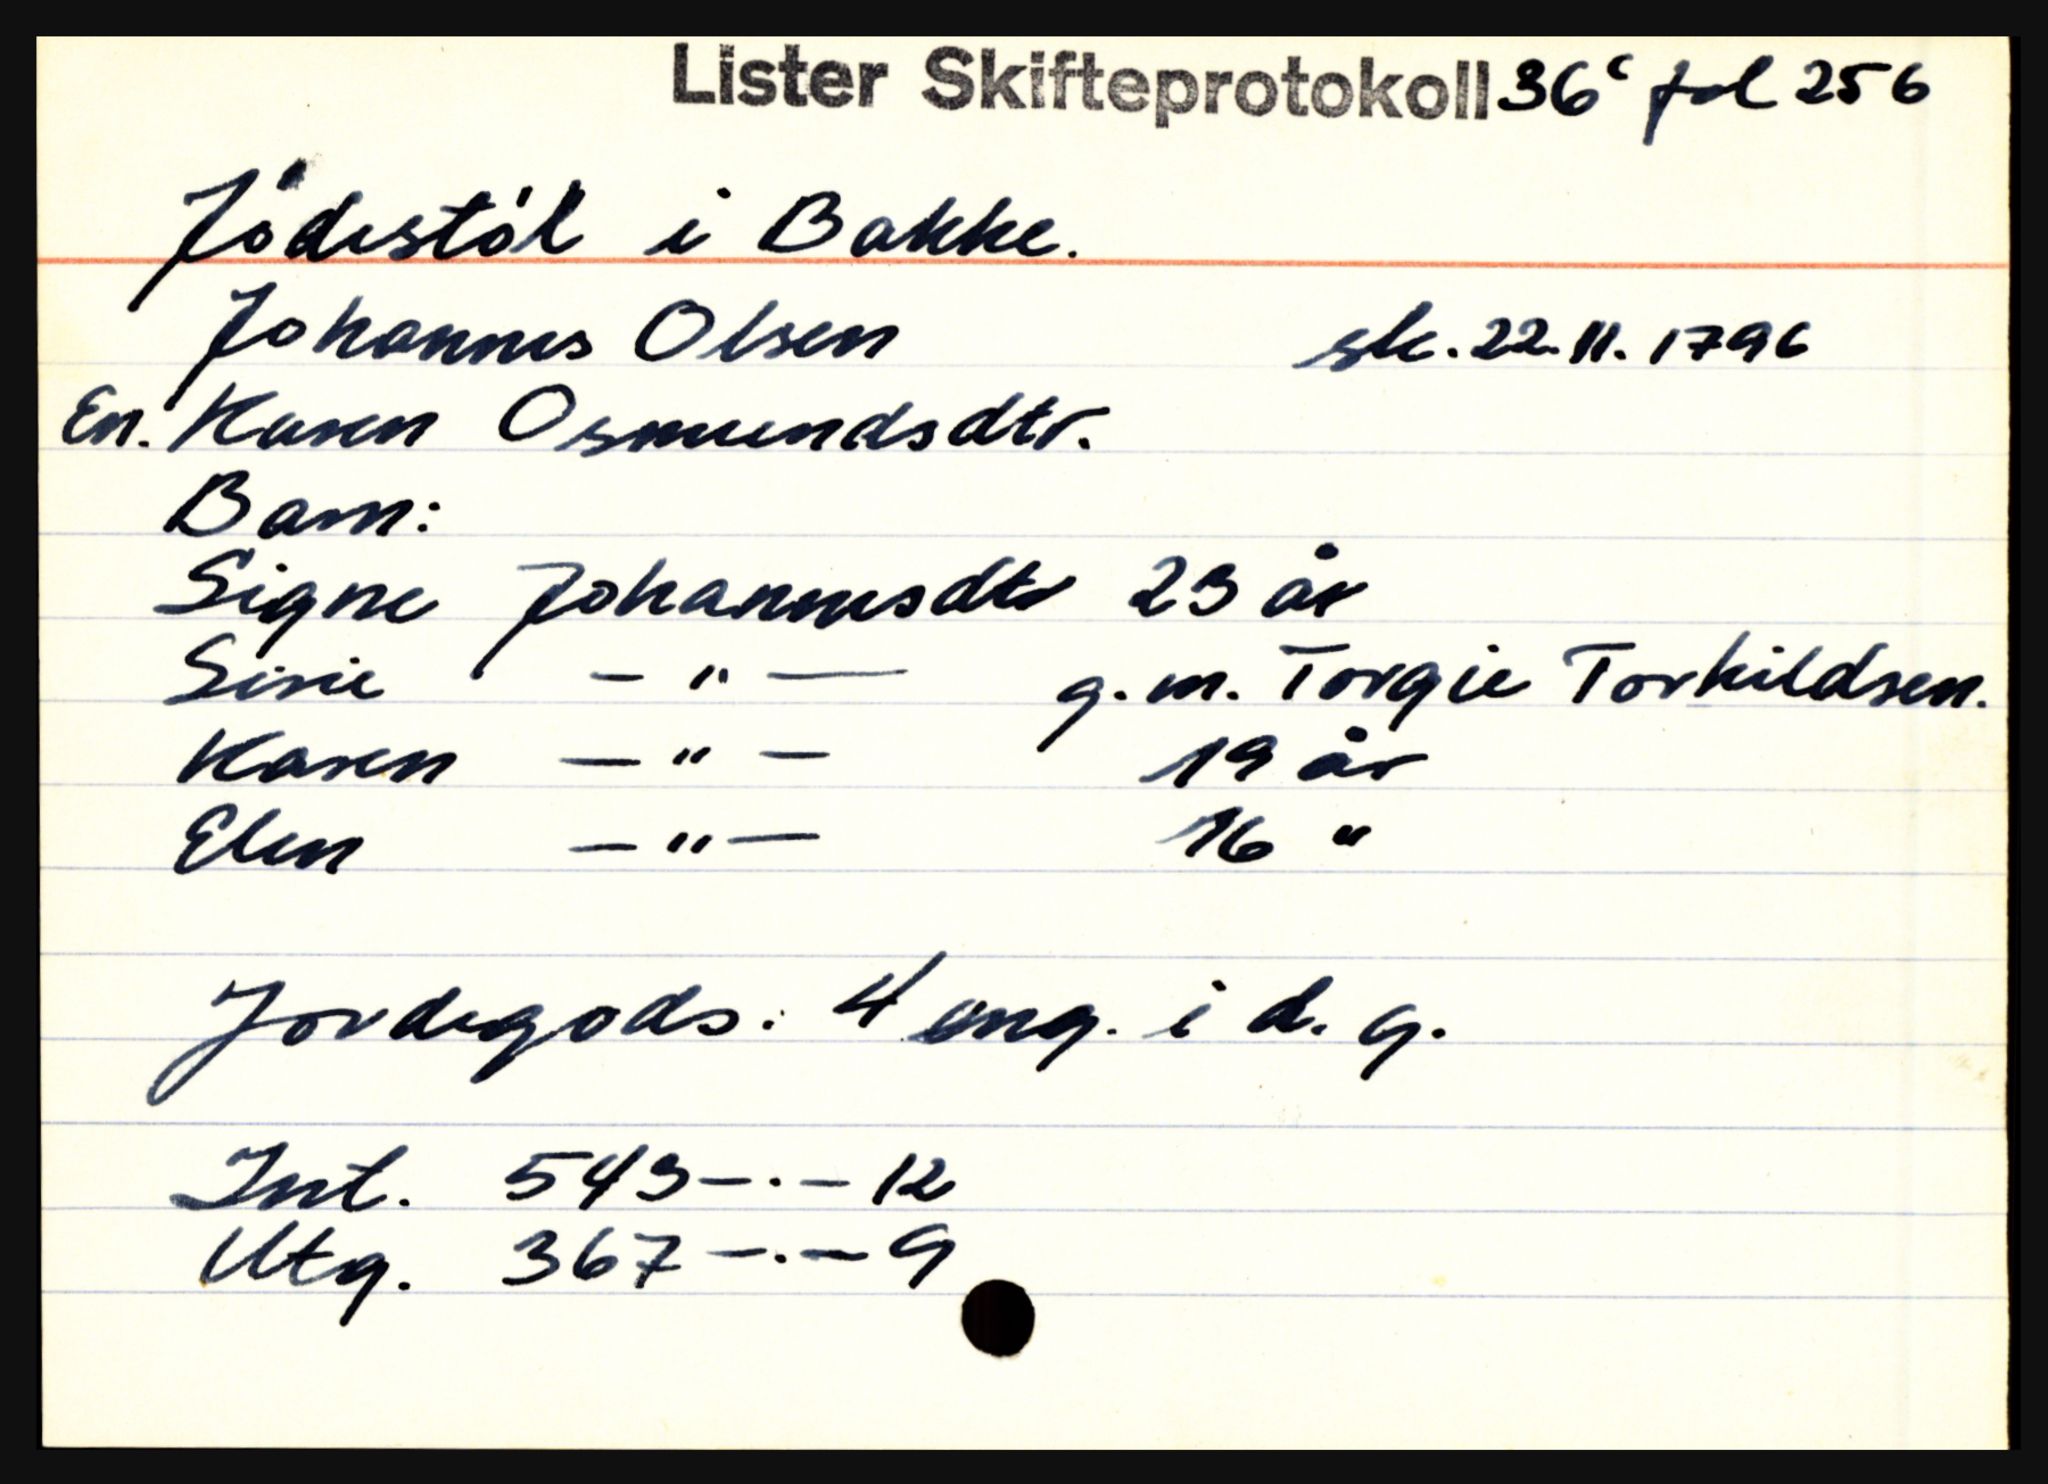 Lister Skifteprotokoll 36c fol 256
Jödestöl i Bakke.
Johannes Olsen sk. 22.11.1796
En. Karen Osmundsdtr.
Barn:
Signe Johannesdtr 23 år
Sirie — " — g. m. Torgie Torkildsen.
Karen — " — 19 år
Elen — " — 16 "
Jordegods: 4 eng. i d. g.
Int. 543 — . — 12
Utg. 367 — . — 9